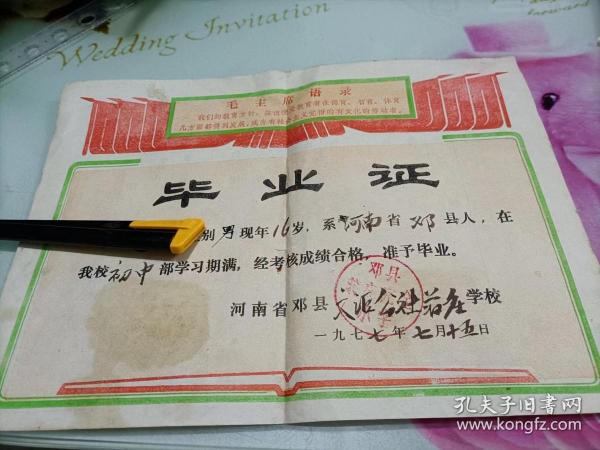 Wedding Invitation
forward
毛主席语录
我们的教育方针,应该使受教育者在德育、智育、体育
几方面都得到发展,成为有社会主义觉悟的有文化的劳动者。
毕业证
别男现年16岁,系河南省邓县人,在
我校初中部学习期满,经考核成绩合格,准予毕业。
邓县
河南省邓县 公社 学校
一九七七年七月十五日
孔夫子旧书网
www.kongfz.com